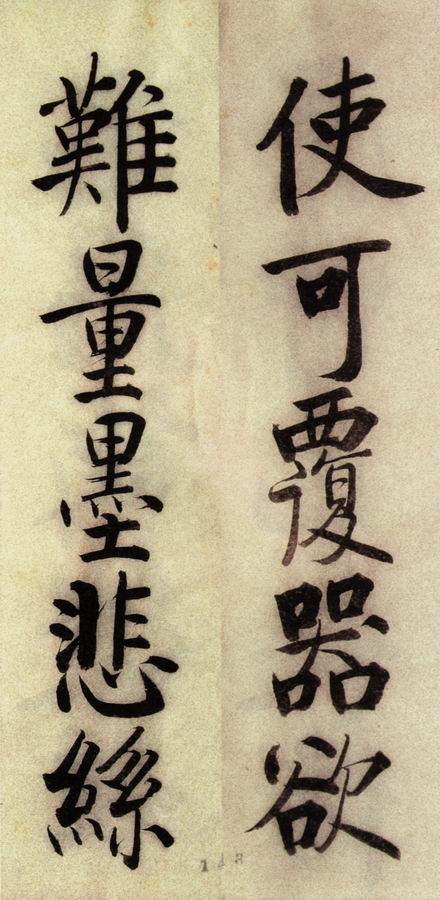 使可覆器欲
難量墨悲絲
143